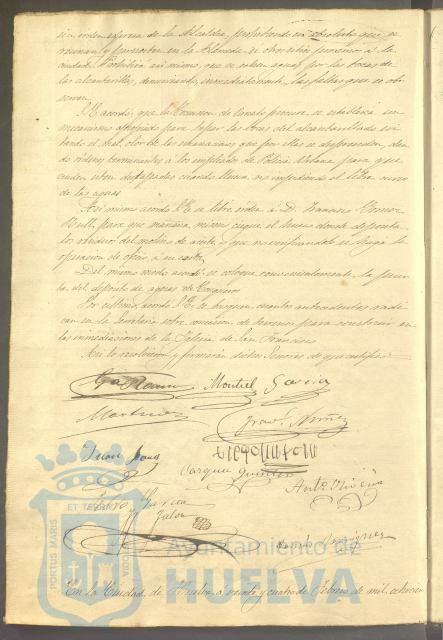 sin orden expresa de la Alcaldia, prohibiendo en absoluto que se
reunan y permanezcan en la Alameda u otros sitios proximos á la
ciudad. Prohibirá asi mismo, que se echen aguas por las bocas de
las alcantarillas, denunciando inmediatamente las faltas que se ob-
serven.
Se acordó que la Comision de Ornato procure se establezca un
mecanismo apropiado para tapar las bocas del alcantarillado evi-
tando el mal olor de las emanaciones que por ellas se desprenden, dan-
do ordenes terminantes á los empleados de Policia Urbana para que
cuiden esten destapadas cuando llueva no impidiendo el libre curso
de las aguas.
Asi mismo acordó S.E. se libre orden á D. Francisco
para que mañana mismo ciegue el hueco donde deposita
los residuos del molino de aceite, y que no verificandolo se haga la
operacion de oficio, á su costa.
Del mismo modo acordó se coloque convenientemente la puer-
ta del deposito de aguas de
Por ultimo, acordó S.E. se busquen cuantos antecedentes radi-
can en la Secretaria sobre concesion de terrenos para construir en
las inmediaciones de la Iglesia de San Francisco.
Asi lo resolvieron y firmarán dichos Señores de que certifico.
Montiel Garcia
Martinez Franco Nuñez
Juan
Vazquez Quintero
Anto Oliveira
Pedro Garcia
Jalon
PORTUS MARIS ET TERRÆ CUSTODIA
Ayuntamiento de
HUELVA
En la Ciudad de Huelva á veinte y cuatro de Febrero de mil ochocien